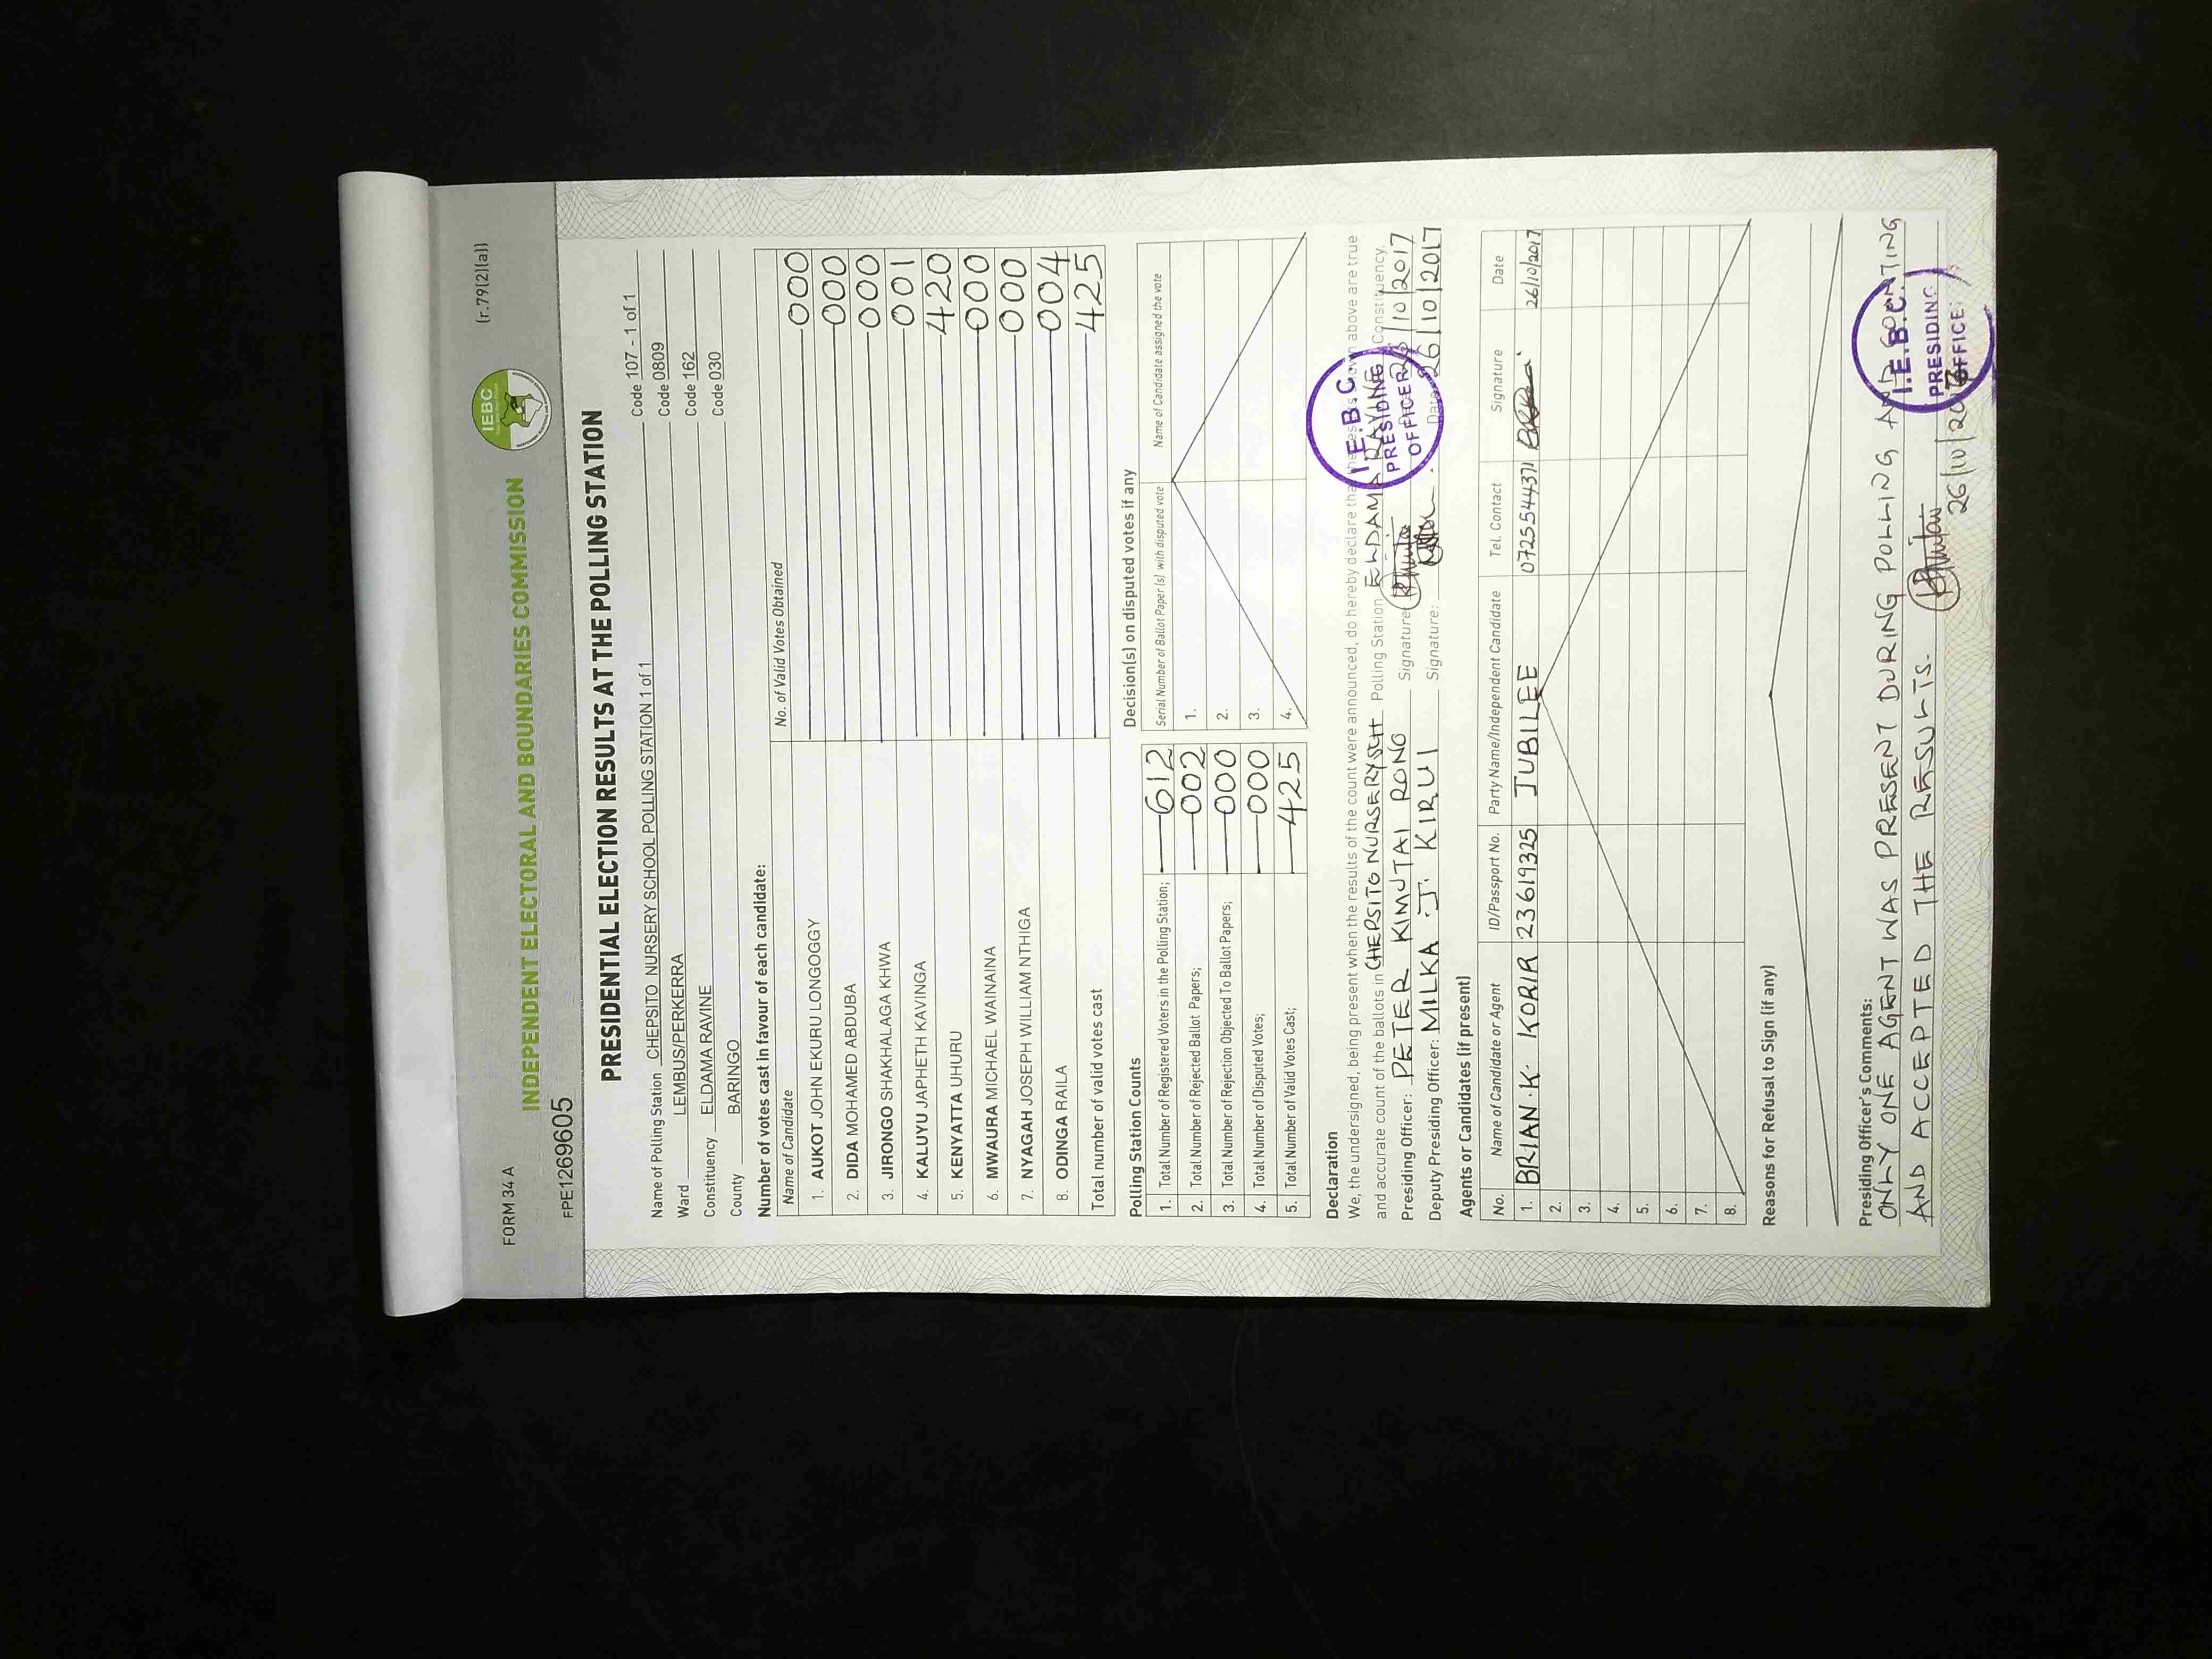 FORM 34 A
(r.79(2)(a))
IEBC
INDEPENDENT ELECTORAL AND BOUNDARIES COMMISSION
FPE1269605
PRESIDENTIAL ELECTION RESULTS AT THE POLLING STATION
Name of Polling Station CHEPSITO NURSERY SCHOOL POLLING STATION 1 of 1 Code 107 - 1 of 1
Ward LEMBUS/PERKERRA Code 0809
Constituency ELDAMA RAVINE Code 162
County BARINGO Code 030
Number of votes cast in favour of each candidate:
Name of Candidate No. of Valid Votes Obtained
1. AUKOT JOHN EKURU LONGOGGY 000
2. DIDA MOHAMED ABDUBA 000
3. JIRONGO SHAKHALAGA KHWA 000
4. KALUYU JAPHETH KAVINGA 001
5. KENYATTA UHURU 420
6. MWAURA MICHAEL WAINAINA 000
7. NYAGAH JOSEPH WILLIAM NTHIGA 000
8. ODINGA RAILA 004
Total number of valid votes cast 425
Polling Station Counts
1. Total Number of Registered Voters in the Polling Station; 612
2. Total Number of Rejected Ballot Papers; 002
3. Total Number of Rejection Objected To Ballot Papers; 000
4. Total Number of Disputed Votes; 000
5. Total Number of Valid Votes Cast; 425
Decision(s) on disputed votes if any
Serial Number of Ballot Paper (s) with disputed vote Name of Candidate assigned the vote
1.
2.
3.
4.
Declaration
We, the undersigned, being present when the results of the count were announced, do hereby declare that the results shown above are true
and accurate count of the ballots in CHEPSITO NURSERY SCH Polling Station ELDAMA RAVINE Constituency.
Presiding Officer: PETER KIMUTAI RONO Signature: Date: 26/10/2017
Deputy Presiding Officer: MILKA J. KIRUI Signature: Date: 26/10/2017
I.E.B.C.
PRESIDING
OFFICER
Agents or Candidates (if present)
No. Name of Candidate or Agent ID/Passport No. Party Name/Independent Candidate Tel. Contact Signature Date
1. BRIAN.K. KORIR 23619325 JUBILEE 0725544371 26/10/2017
2.
3.
4.
5.
6.
7.
8.
Reasons for Refusal to Sign (if any)
Presiding Officer's Comments:
ONLY ONE AGENT WAS PRESENT DURING POLLING AND COUNTING
AND ACCEPTED THE RESULTS.
26/10/2017
I.E.B.C.
PRESIDING
OFFICE